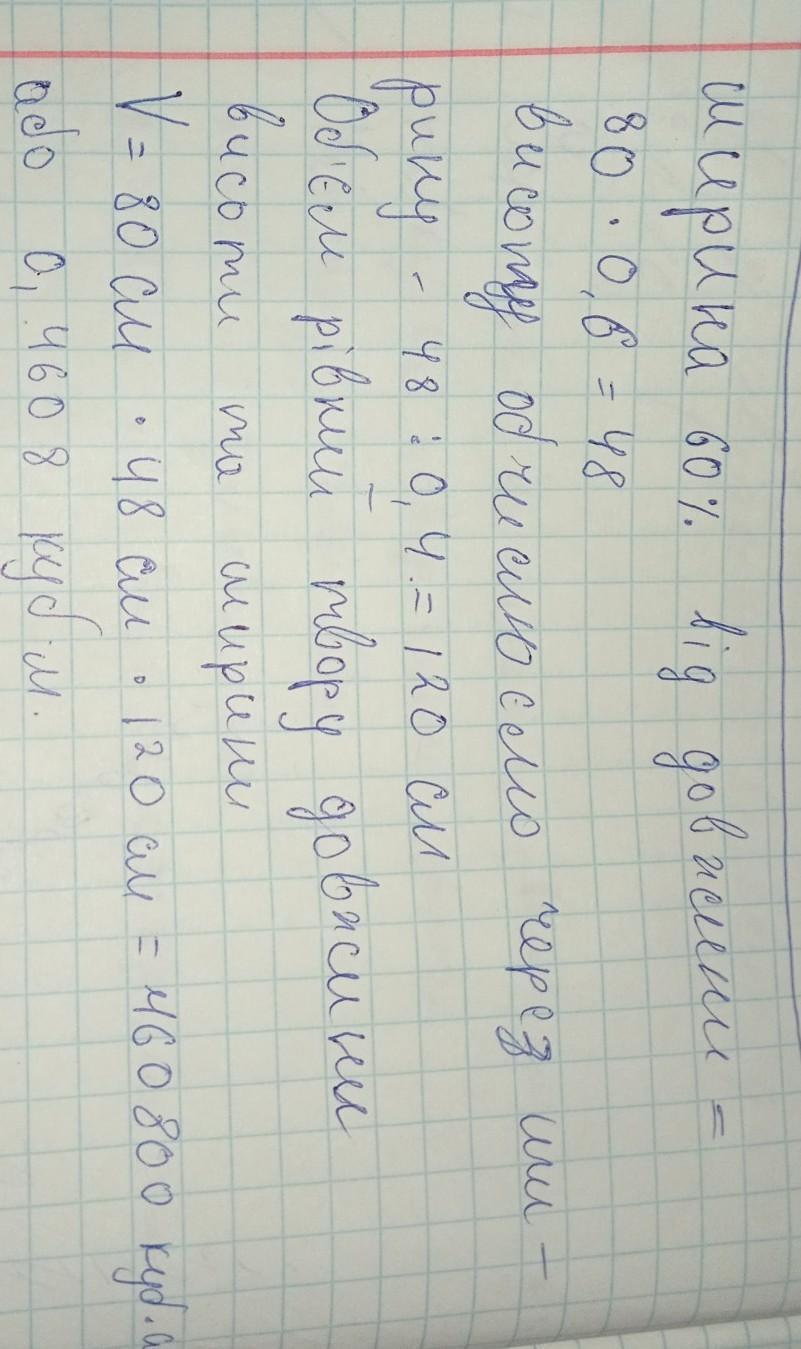 ширина 60% від довжини =
80 · 0,6 = 48
висоту обчислюємо через ши-
рину - 48 : 0,4 = 120 см
Об'єм рівний твору довжини
висоти та ширини
V = 80 см · 48 см · 120 см = 460800 куб.
або 0,4608 куб.м.